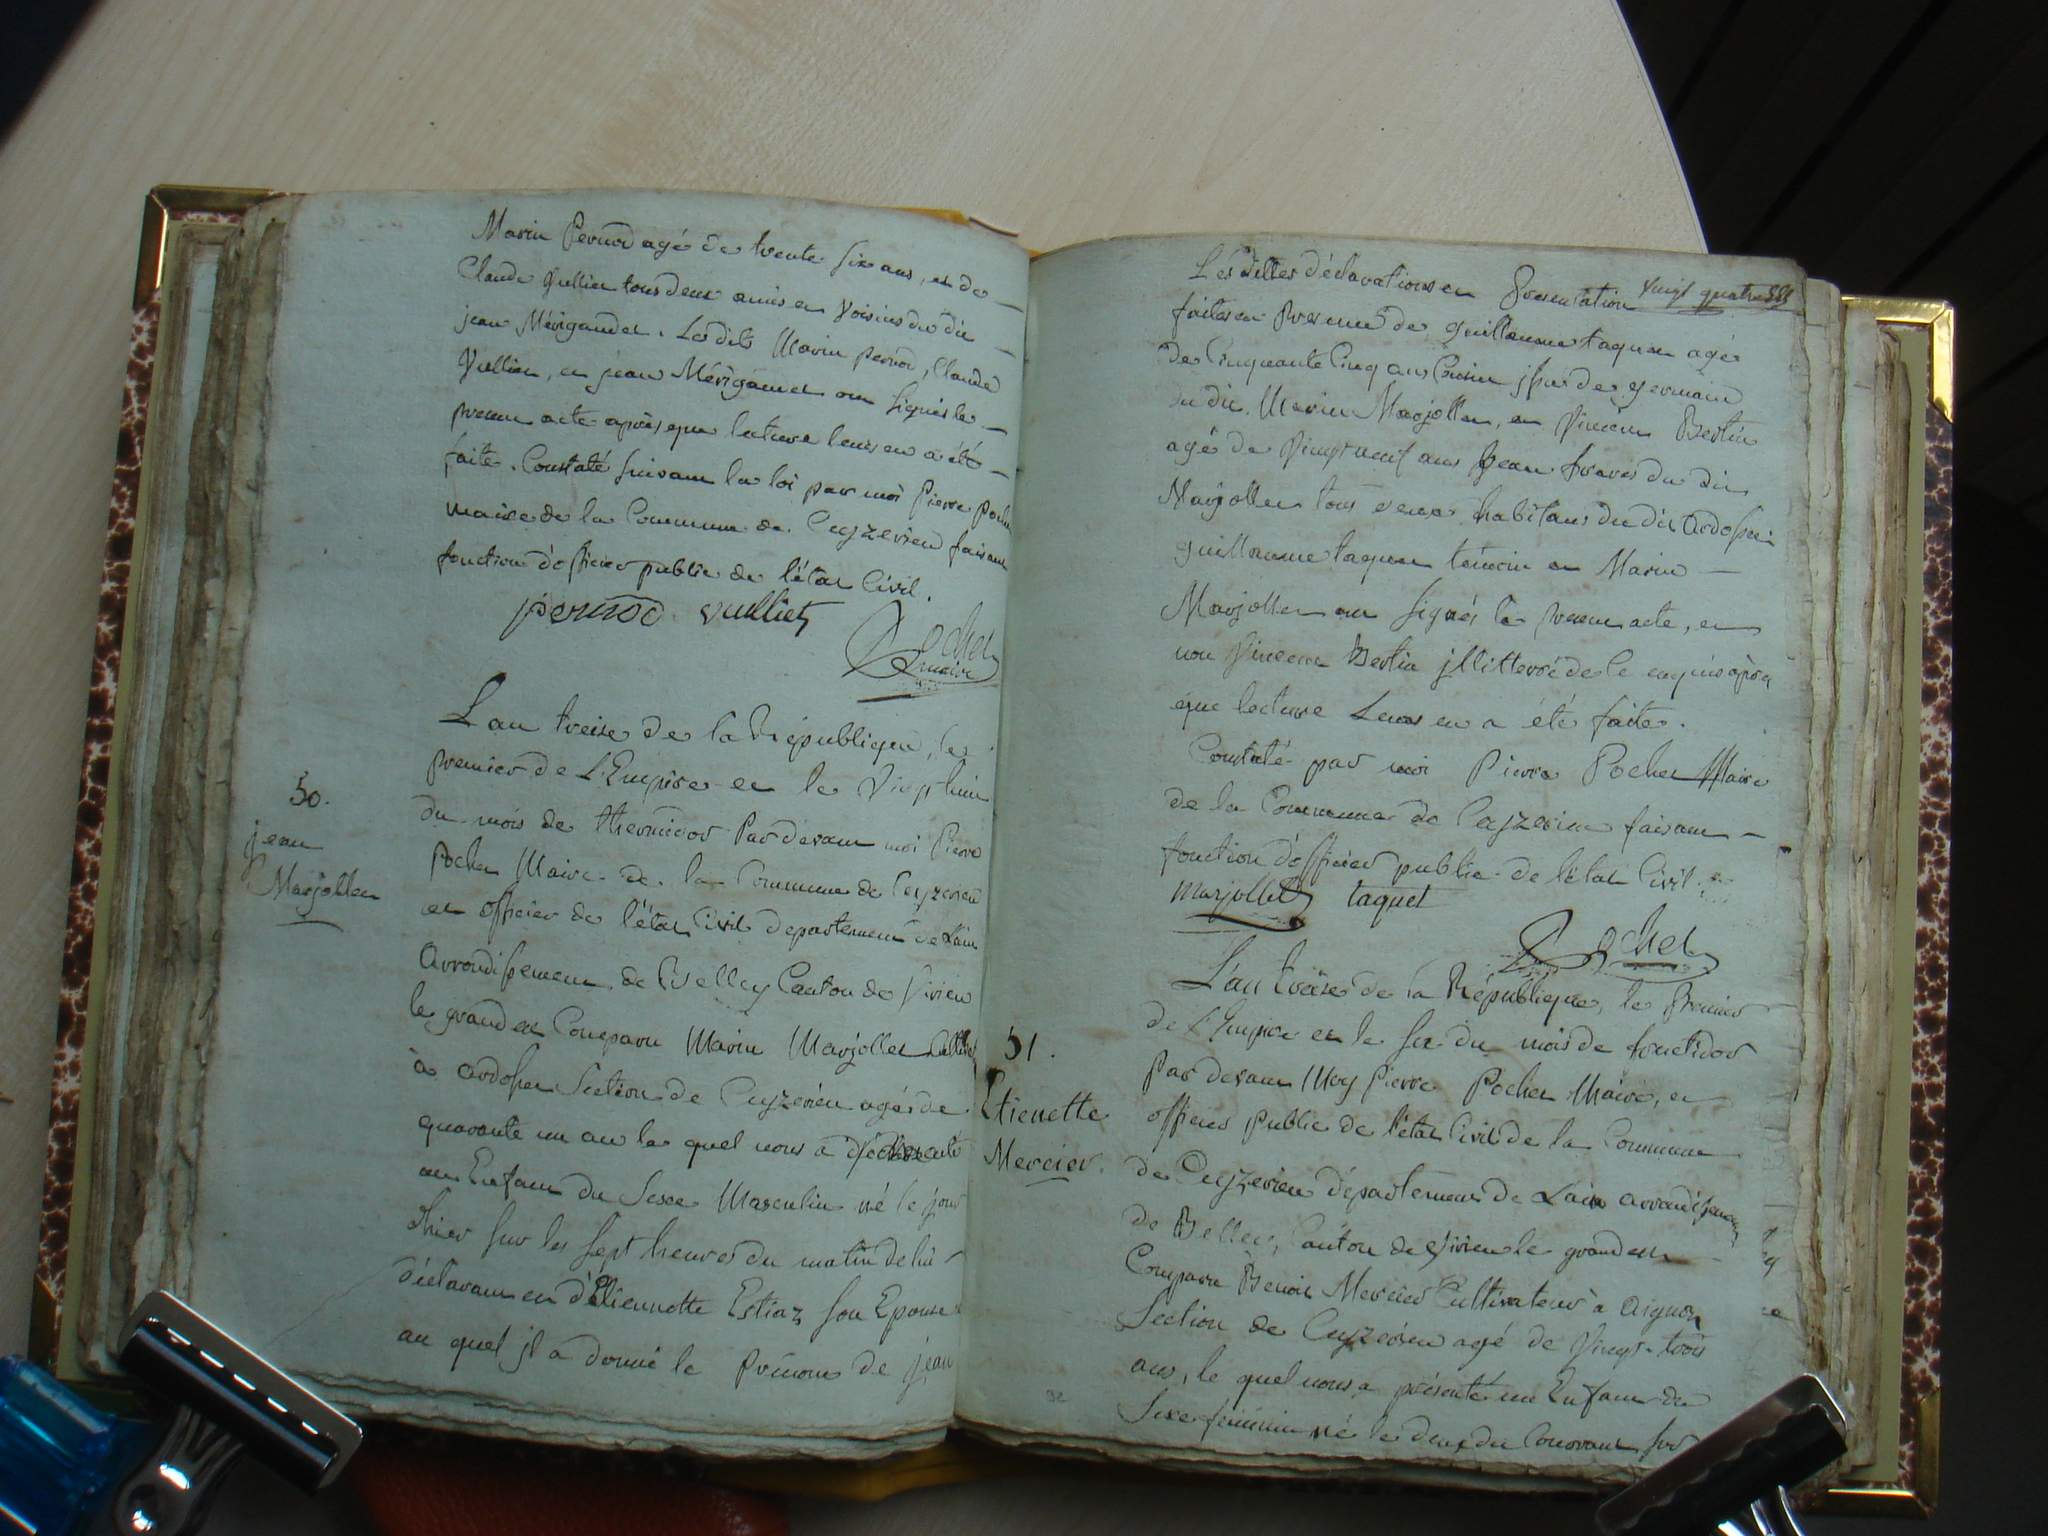 Marin Pernod agé de trente six ans, et de
Claude Vulliet tous deux amis et voisins du dit
jean Mérigaudet. Les dits Marin pernod, Claude
Vulliet, et jean Mérigaudet ont signés le
present acte après que lecture leurs en a été
faite. Constaté suivant la loi par moi Pierre Pochet
maire de la Commune de Ceyzerieu faisant
fonction d'officier public de l'état Civil.
pernod vulliet
Pochet
maire
50.
jean
Marjollet
L'an treise de la République, le
premier de L'Empire et le Vingt huit
du mois de thermidor Pardevant moi Pierre
Pochet Maire de la Commune de Ceyzerieu
et officier de l'état Civil departement de Lain
Arrondissement de Belley Canton de Virieu
le grand est Comparu Marin Marjollet
à ardosset Section de Ceyzerieu agé de
quarante un an le quel nous a présenté
un Enfant du Sexe Masculin né le jour
d'hier sur les sept heures du matin de lui
déclarant et d'Etiennette Estiaz son Epouse
au quel jl a donné le prénom de jean
vingt quatre
Lés dittes déclarations et Presentation
faites en Presence de guillaume taquet agé
de Cinquante Cinq ans Cousin jssu de germain
du dit Marin Marjollet, et Vincent Bertin
agé de Vingt neuf ans Beau frere du dit
Marjollet tous deux habitans du dit Ardosset
guillaume taquet témoin et Marin
Marjollet ont signés le present acte, et
non Vincent Bertin jllitteré de le enquis après
que lecture Leurs en a été faite.
Constaté par moi Pierre Pochet Maire
de la Commune de Ceyzerieu faisant
fonction d'officier public de l'état Civil.
marjollet taquet
Pochet
51.
Etienette
Mercier.
L'an treise de la République, le Premier
de L'Empire et le six du mois de fructidor
Par devant Moy Pierre Pochet Maire, et
officier public de l'état Civil de la Commune
de Ceyzerieu département de Lain arrondissement
de Belley, Canton de Virieu le grand est
Comparu Benoit Mercier Cultivateur à Aignoz
Section de Ceyzerieu agé de Vingt-trois
ans, le quel nous a présenté un Enfant du
Sexe féminin né le deux du Courrant sur
92